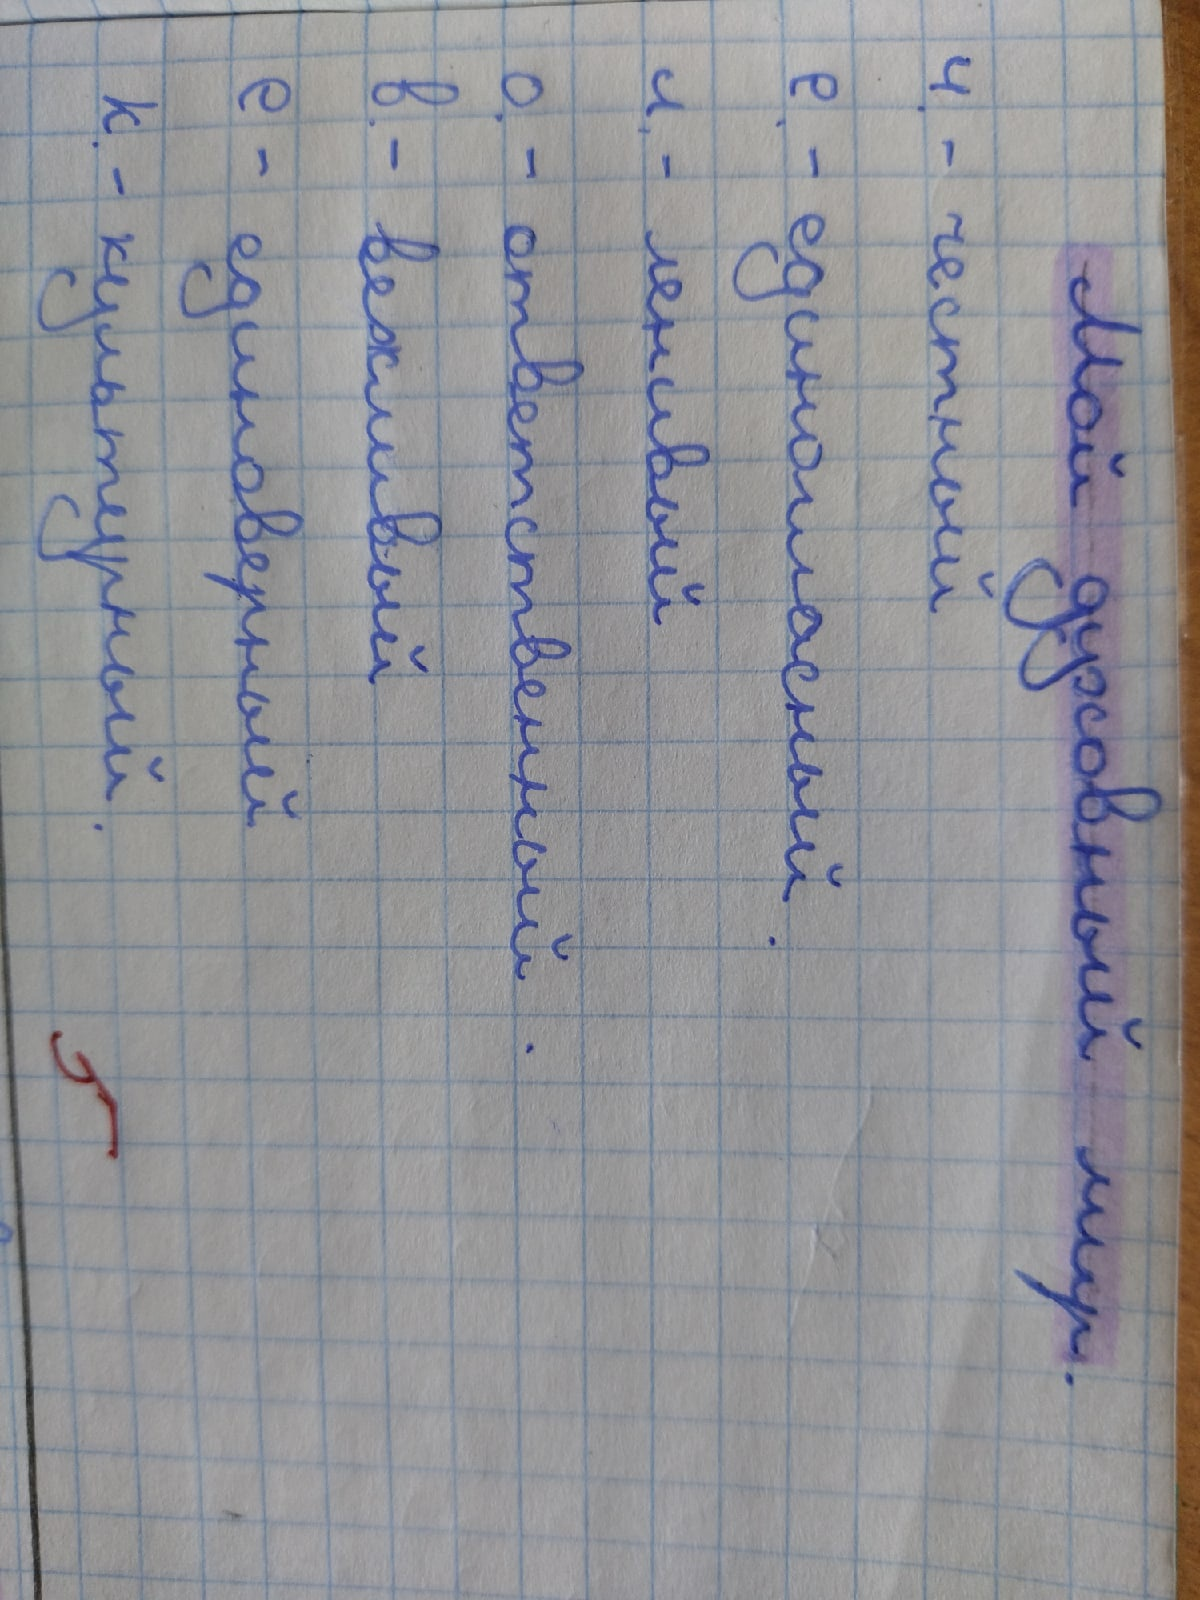 Мой духовный мир.
ч. - честный
е. - единогласный.
л. - ленивый
о. - ответственный.
в. - вежливый
е - единоверный
к. - культурный.
5